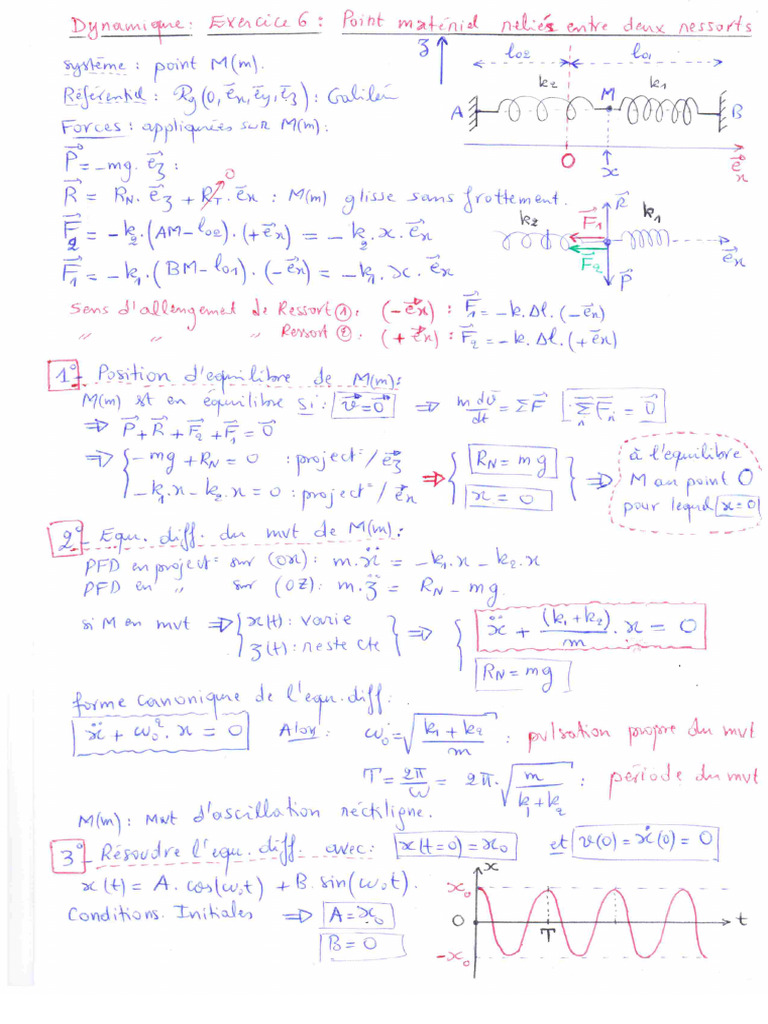 Dynamique: Exercice 6: Point matériel reliés entre deux ressorts
système: point M(m).
Référentiel: Rg(O, e⃗x, e⃗y, e⃗z): Galiléen
Forces: appliquées sur M(m):
P⃗ = -mg. e⃗z:
R⃗ = RN. e⃗z + RT. e⃗x : M(m) glisse sans frottement.
0
F⃗2 = -k2.(AM-l02).(+e⃗x) = -k2.x.e⃗x
F⃗1 = -k1.(BM-l01).(-e⃗x) = -k1.x.e⃗x
z l02 l01
k2 M k1
A B
O x e⃗x
k2 F⃗1 R⃗ k1
F⃗2 P⃗ e⃗x
Sens d'allongement de Ressort ①: (-e⃗x) : F⃗1 = -k.Δl.(-e⃗x)
" " " Ressort ②: (+e⃗x) : F⃗2 = -k.Δl.(+e⃗x)
1°- Position d'équilibre de M(m):
M(m) est en équilibre si: v⃗=0⃗ ⇒ m dv⃗/dt = ΣF⃗ Σn F⃗n = 0⃗
⇒ P⃗+R⃗+F⃗2+F⃗1=0⃗
⇒ { -mg+RN = 0 : project°/e⃗z
-k1.x-k2.x=0 : project°/e⃗x
⇒ { RN = mg
x = 0 } ⇒
à l'équilibre
M au point O
pour lequel x=0
2°- Equ. diff. du mvt de M(m):
PFD en project° sur (Ox): m.ẍ = -k1.x - k2.x
PFD en " sur (OZ): m.z̈ = RN - mg.
si M en mvt ⇒ { x(t): varie
z(t): reste cte } ⇒ { ẍ + (k1+k2)/m . x = 0
RN = mg
forme canonique de l'equ.diff:
ẍ + ω0². x = 0 Alors: ω0 = √((k1+k2)/m) : pulsation propre du mvt
T = 2π/ω = 2π.√(m/(k1+k2)) : période du mvt
M(m): Mvt d'ascillation réctiligne.
3°- Résoudre l'equ.diff. avec: x(t=0)=x0 et v(0)=ẋ(0)=0
x(t) = A.cos(ω0t) + B.sin(ω0t).
Conditions Initiales ⇒ A=x0
B=0
x
x0
O T t
-x0